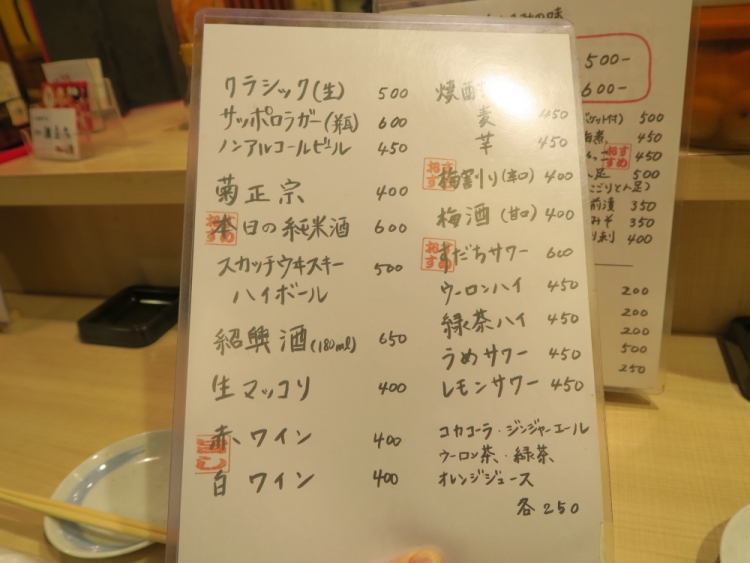 クラシック(生) 500
サッポロラガー(瓶) 600
ノンアルコールビール 450
菊正宗 400
おすすめ
本日の純米酒 600
スカッチウヰスキー 500
ハイボール
紹興酒(180ml) 650
生マッコリ 400
赤ワイン 400
白ワイン 400
焼酎
麦 450
芋 450
おすすめ
梅割り(辛口) 400
梅酒(甘口) 400
おすすめ
すだちサワー 600
ウーロンハイ 450
緑茶ハイ 450
うめサワー 450
レモンサワー 450
コカコーラ・ジンジャーエール
ウーロン茶・緑茶
オレンジジュース
各250
の味
500-
600-
ット付) 500
煮 450
おすすめ
450
足 500
こごりとん足)
前漬 350
みそ 350
刺 400
200
200
200
500
250